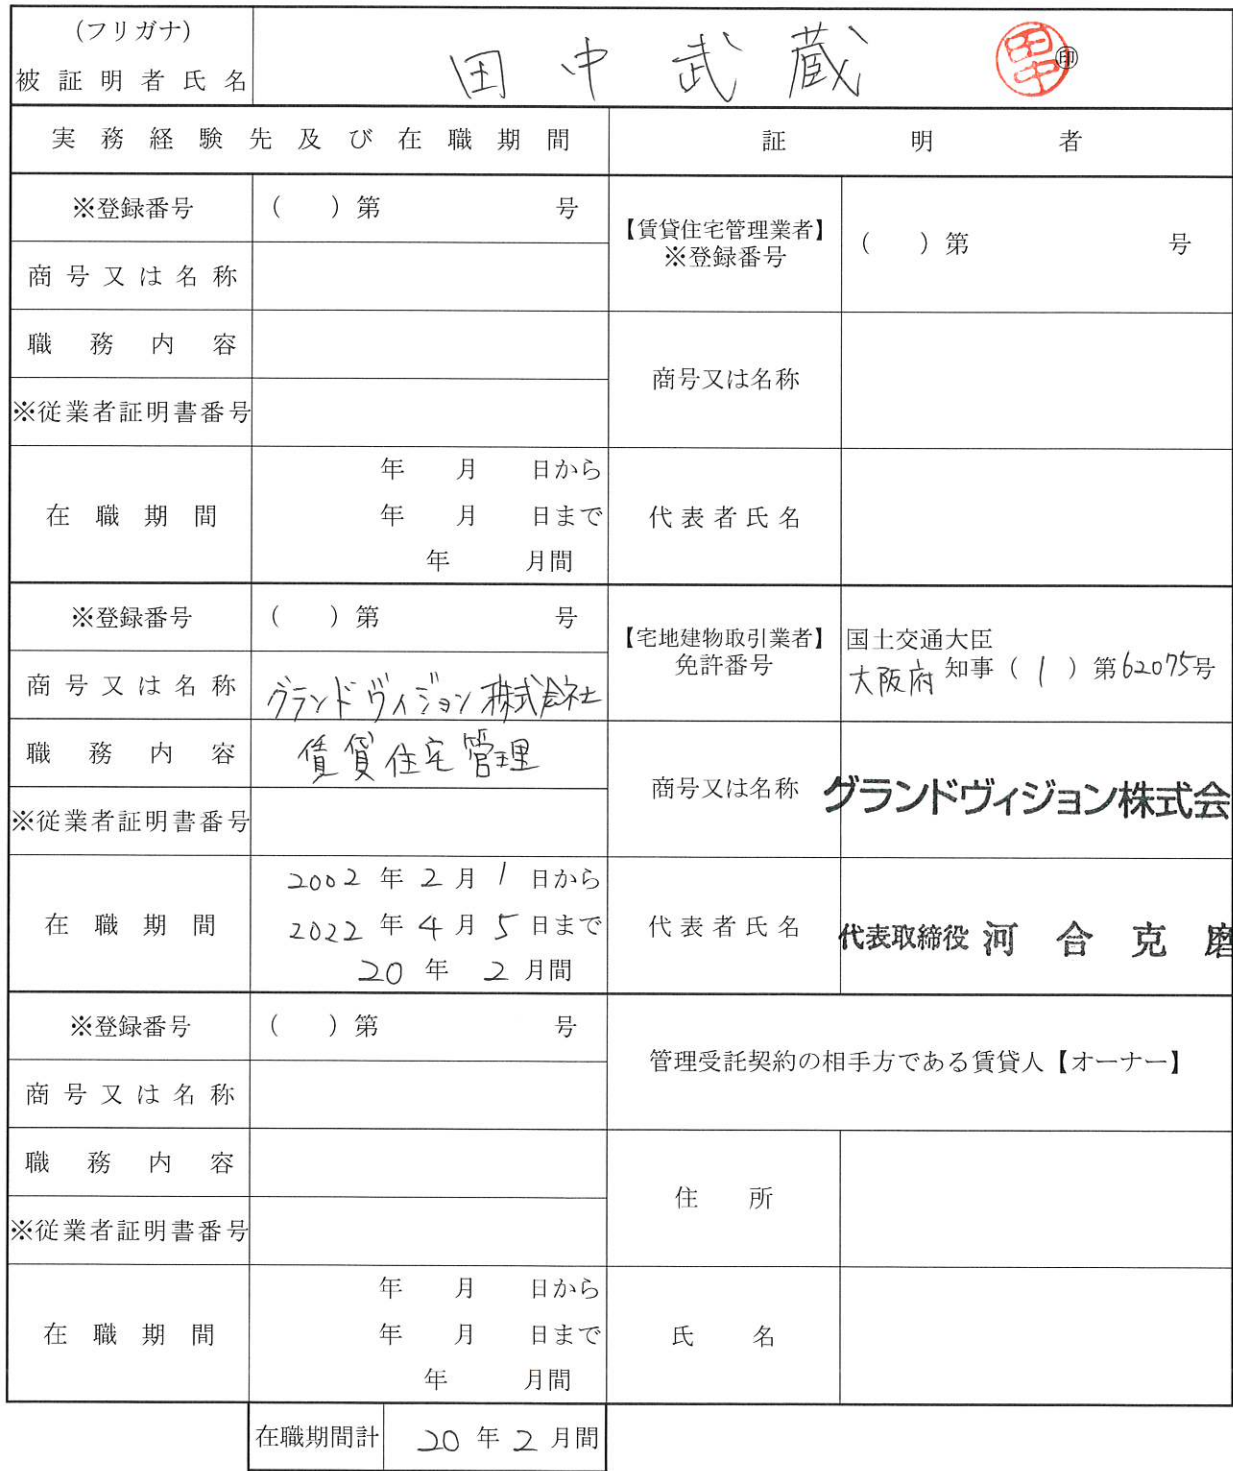 (フリガナ)
被証明者氏名
田中武蔵
田中
㊞
実務経験先及び在職期間
証明者
※登録番号
( ) 第 号
商号又は名称
職務内容
※従業者証明書番号
在職期間
年 月 日から
年 月 日まで
年 月間
【賃貸住宅管理業者】
※登録番号
( ) 第 号
商号又は名称
代表者氏名
※登録番号
( ) 第 号
商号又は名称
グランドヴィジョン株式会社
職務内容
賃貸住宅管理
※従業者証明書番号
在職期間
2002 年 2 月 1 日から
2022 年 4 月 5 日まで
20 年 2 月間
【宅地建物取引業者】
免許番号
国土交通大臣
大阪府 知事 ( 1 ) 第62075号
商号又は名称
グランドヴィジョン株式会
代表者氏名
代表取締役 河合克磨
※登録番号
( ) 第 号
商号又は名称
職務内容
※従業者証明書番号
在職期間
年 月 日から
年 月 日まで
年 月間
管理受託契約の相手方である賃貸人【オーナー】
住所
氏名
在職期間計
20 年 2 月間